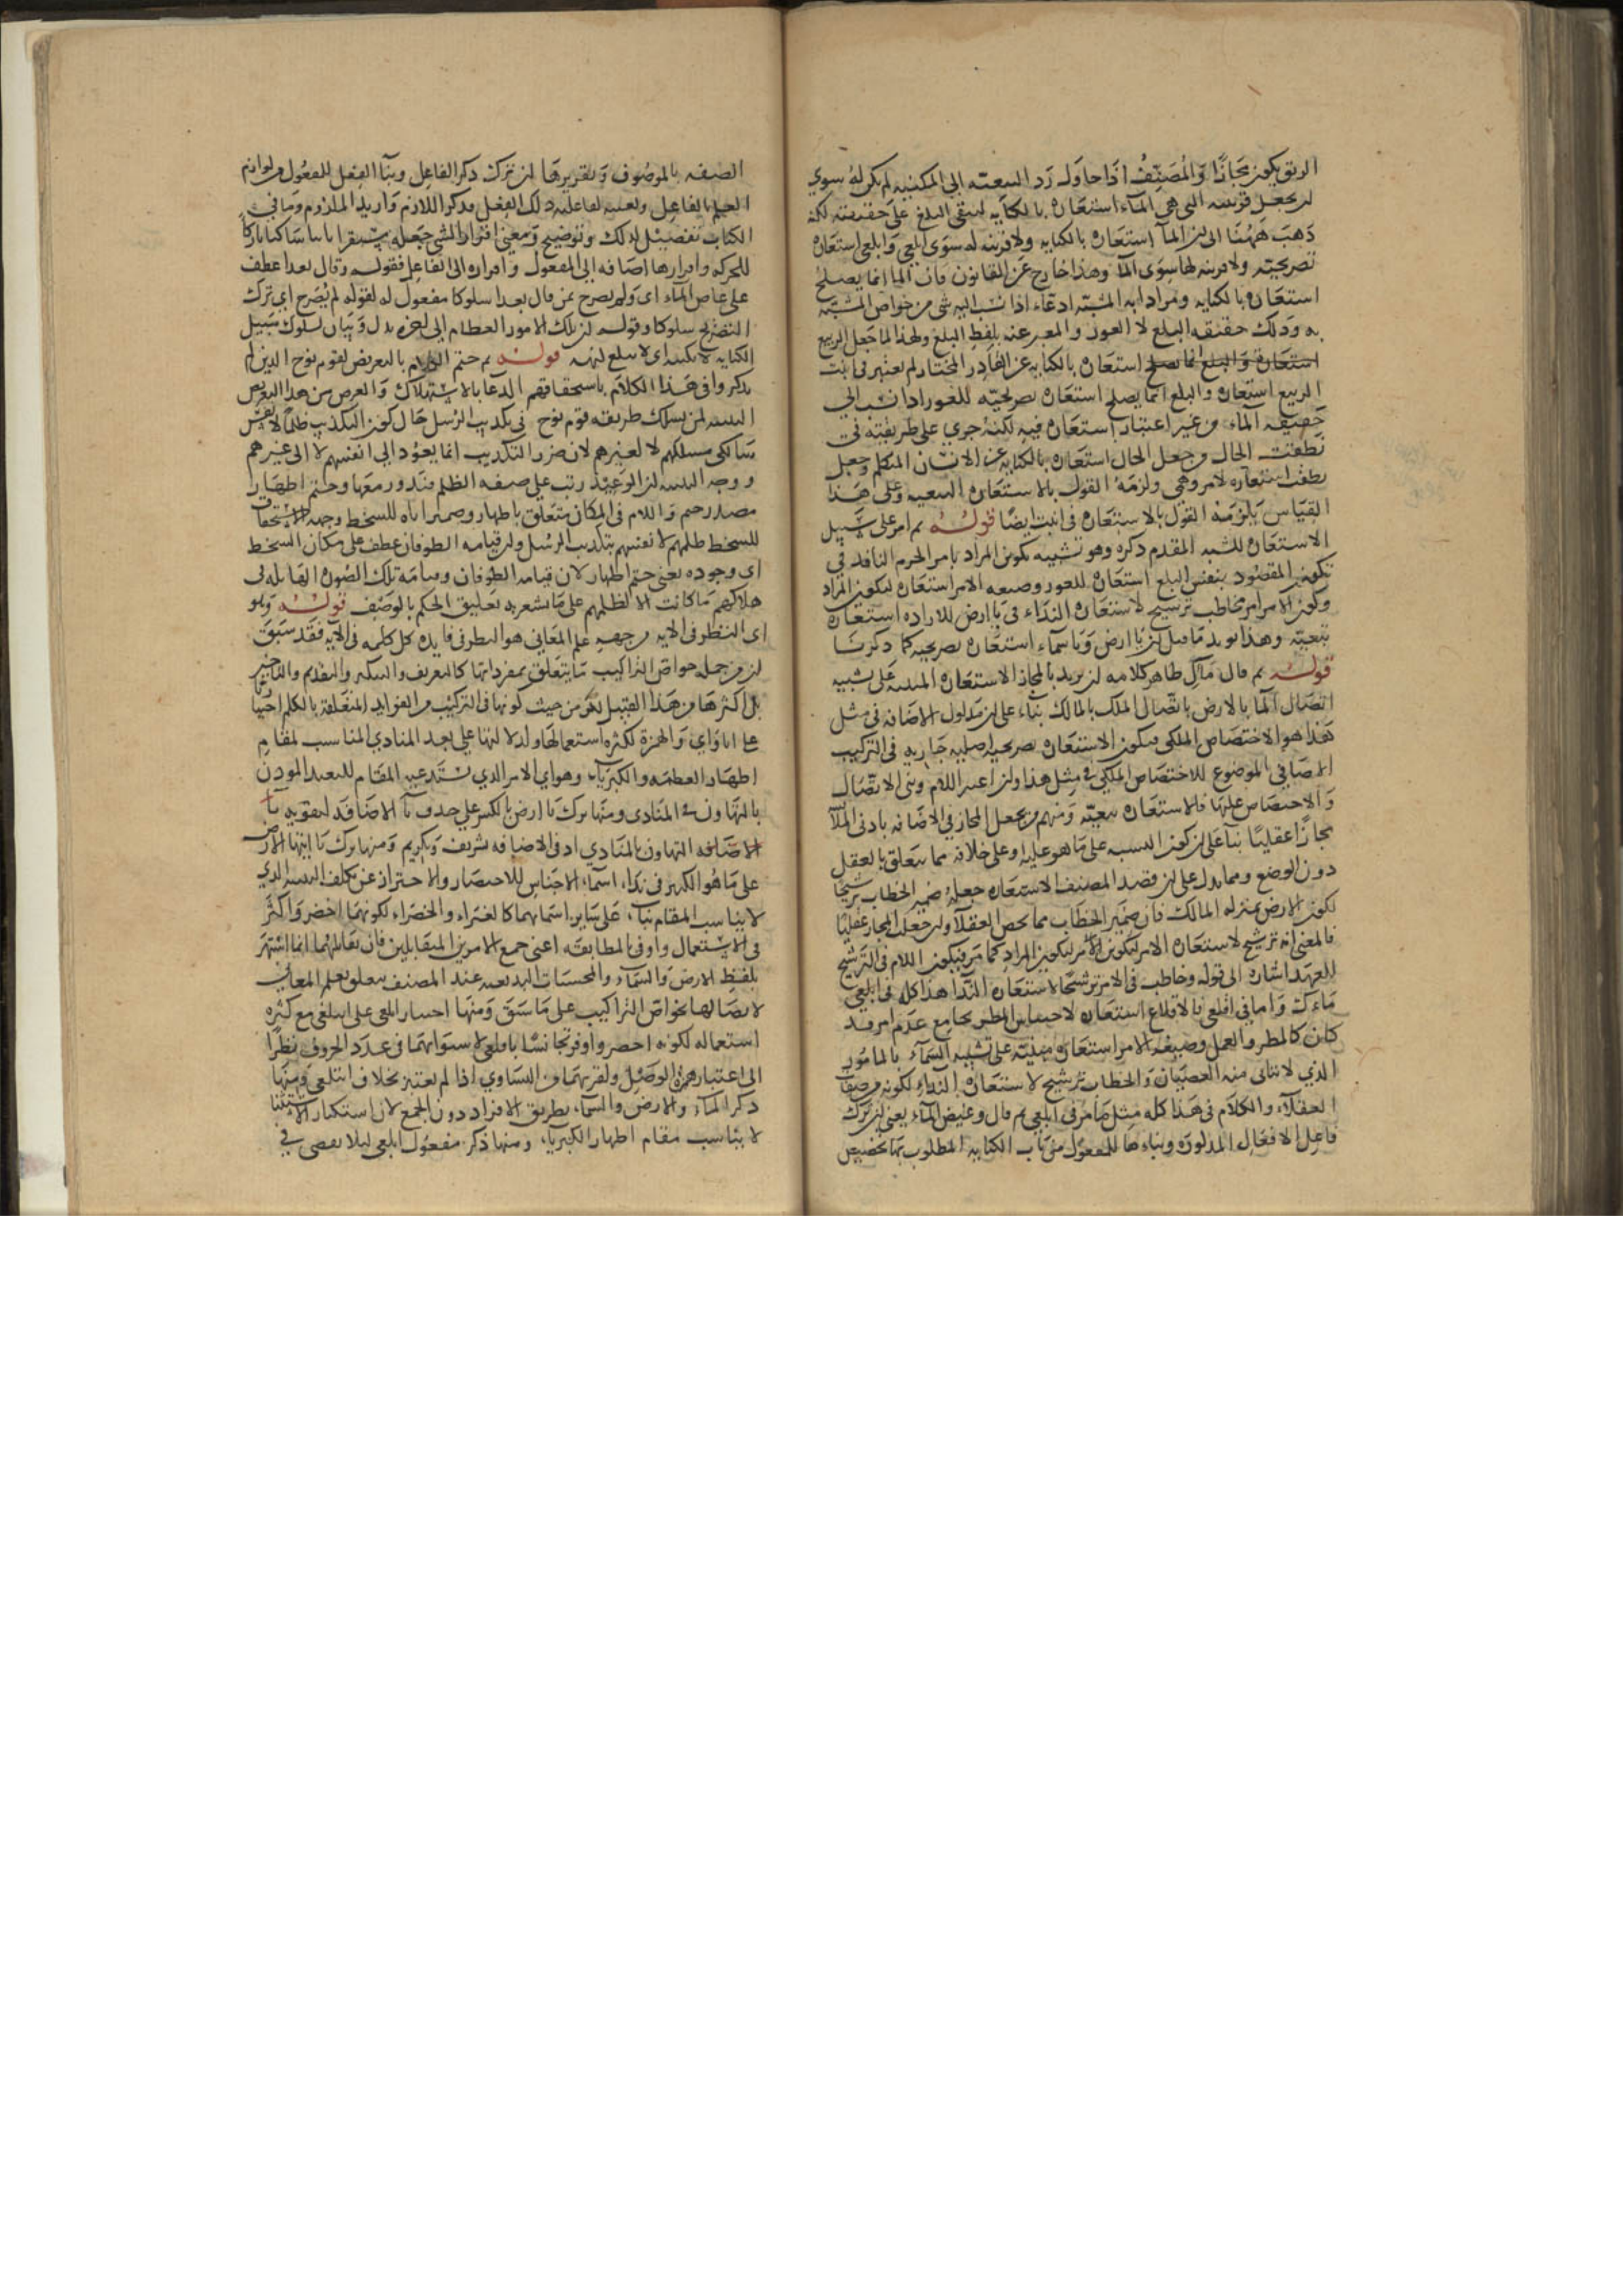 الربق يكون مجازا والمصنف اذا حاول رد التبعيه الى المكنيه لم يكن له سوي
ان يجعل قرينته التي هي الماء استعارة بالكنايه ليبقى البلع على حقيقته لكنه
ذهب ههنا الى ان الماء استعارة بالكنايه ولا قرينه له سوى ابلعي وابلعي استعارة
تصريحيه ولا قرينه لها سوى الماء وهذا خارج عن القانون فان الماء انما يصلح
استعارة بالكنايه ومرادا به المشبه ادعاء اذا نسب اليه شي من خواص المشبه
به وذلك حقيقه البلع لا الغور والمعبر عنه بلفظ البلع ولهذا لما جعل الربيع
استعارة والبلع انما يصلح استعارة بالكنايه عن القادر المختار لم يعتبر في انبت
الربيع استعاره والبلع انما يصلح استعارة تصريحيه للغور اذا نسب الى
حقيقه الماء من غير اعتبار استعارة فيه لكنه جري على طريقته في
نطقت الحال وجعل الحال استعارة بالكنايه عن الانسان المتكلم وجعل
نطقت استعاره لامر وهمي ولزمه القول بالاستعارة التبعيه وعلى هذا
القياس يلزمه القول بالاستعارة في انبت ايضا قوله ثم امر على سبيل
الاستعارة للشبه المقدم ذكره وهو تشبيه تكوين المراد بامر الجزم النافد في
تكوين المقصود بنفس البلع استعارة للغور وصيغه الامر استعارة لتكوين المراد
وكون الامر امر مخاطب ترشيح لاستعارة النداء في يا ارض للاراده استعارة
تبعيه وهذا يويد ما قيل ان يا ارض ويا سماء استعارة تصريحيه كما ذكرنا
قوله ثم قال ماءك ظاهر كلامه ان يريد بالمجاز الاستعارة المبنيه على تشبيه
اتصال الماء بالارض باتصال الملك بالمالك بناء على ان مدلول الاضافه في مثل
هذا هو الاختصاص الملكي فيكون الاستعارة تصريحيه اصليه جاريه في التركيب
الاضافي الموضوع للاختصاص الملكي في مثل هذا وان اعتبر اللام وبنى الاتصال
والاختصاص عليها فالاستعارة تبعيه ومنهم من يجعل المجاز في الاضافه بادنى الملابسه
مجازا عقليا بناء على ان كون النسبه على ما هو عليه او على خلافه مما يتعلق بالعقل
دون الوضع ومما يدل على ان قصد المصنف الاستعاره جعله ضمير الخطاب ترشيحا
لكون الارض بمنزله المالك فان ضمير الخطاب مما يخص العقلاء وان جعلت المجاز عقليا
فالمعنى انه ترشيح لاستعارة الامر لتكوين المراد كما مر فيكون اللام في الترشيح
للعهد اشاره الى قوله وخاطب في الامر ترشيحا لاستعارة النداء هذا كله في ابلعي
ماءك واما في اقلعي فالاقلاع استعارة لاحتباس المطر بجامع عدم امر قد
كان كالمطر والعمل وصيغه الامر استعارة مبنيه على تشبيه السماء بالمامور
الذي لا يتاتى منه العصيان والخطاب ترشيح لاستعارة النداء لكونه من صفات
العقلاء والكلام في هذا كله مثل ما مر في ابلعي ثم قال وغيض الماء يعني ان ترك
فاعل الافعال المذكوره وبناءها للمفعول من باب الكنايه المطلوب بها تخصيص
الصفه بالموصوف وتقريرها ان ترك ذكر الفاعل وبناء الفعل للمفعول من لوازم
العلم بالفاعل وتعينه لفاعليه ذلك الفعل فذكر اللازم واريد الملزوم وما في
الكتاب تفصيل لذلك وتوضيح ومعنى اقرار الشي جعله مستقرا ثابتا ساكنا تاركا
للحركه واقرارها اضافه الى المفعول واقراره الى الفاعل فقوله وقال بعدا عطف
على غاض الماء اي ولم يصرح بمن قال بعدا سلوكا مفعول له لقوله لم يصرح اي ترك
التصريح سلوكا وقوله ان تلك الامور العظام الى اخره بدل وبيان لسلوك سبيل
الكنايه لا يكتنه اي لا يبلغ كنهه قوله ثم ختم الكلام بالتعريض لقوم نوح الذين لم
يذكروا في هذا الكلام باستحقاقهم الدعاء بالاستهلاك والغرض من هذا التعريض
التنبيه لمن يسلك طريقه قوم نوح في تكذيب الرسل حال كون التكذيب ظلما لانفس
سالكي مسلكهم لا لغيرهم لان ضرر التكذيب انما يعود الى انفسهم لا الى غيرهم
ووجه التنبيه ان الوعيد رتب على صفه الظلم فتدور معها وختم اظهار
مصدر ختم واللام في لمكان متعلق باظهار وضمير اياه للسخط وجهه الاستحقاق
للسخط ظلمهم لانفسهم بتكذيب الرسل وان قيامه الطوفان عطف على مكان السخط
اي وجوده يعني ختم اظهار لان قيامه الطوفان وقيامه تلك الصوره الهايله في
هلاكهم ما كانت الا لظلمهم على ما يشعر به تعليق الحكم بالوصف قوله ولو
اي النظر في الايه من جهه علم المعاني هو النظر في فايده كل كلمه في الايه فقد سبق
ان من جمله خواص التراكيب ما يتعلق بمفرداتها كالتعريف والتنكير والتقديم والتاخير
بل اكثرها من هذا القبيل لكن من حيث كونها في التركيب ومن الفوايد المتعلقه بالكلم اختيار يا
على ايا واي والهمزة لكثرة استعمالها ولدلالتها على بعد المنادي المناسب لمقام
اظهار العظمه والكبرياء وهو اي الامر الذي يستدعيه المقام للتبعيد الموذن
بالتهاون في المنادى ومنها ترك يا ارض بالكسر على حذف يا الاضافه لتقويه يا
الاضافه التهاون بالمنادي اذ في الاضافه تشريف وتكريم ومنها ترك يا ايتها الارض
على ما هو الكثير في نداء اسماء الاجناس للاختصار والاحتراز عن تكلف التنبيه الذي
لا يناسب المقام بناء على ساير اسمايهما كالغبراء والخضراء لكونهما اخصر واكثر
في الاستعمال واوفى بالمطابقه اعني جمع الامرين المتقابلين فان تقابلهما انما اشتهر
بلفظ الارض والسماء والمحسنات البديعيه عند المصنف يتعلق بعلم المعاني
لاتصالها بخواص التراكيب على ما سبق ومنها اختيار ابلعي على ابتلعي مع كثره
استعماله لكونه اخصر واوفر تجانسا باقلعي لاستوايهما في عدد الحروف نظرا
الى اعتبار همزة الوصل ولقربهما من التساوي اذا لم يعتبر بخلاف ابتلعي ومنها
ذكر الماء والارض والسماء بطريق الافراد دون الجمع لان استكثار الاشيا
لا يناسب مقام اظهار الكبرياء ومنها ذكر مفعول ابلعي ليلا يفضي في